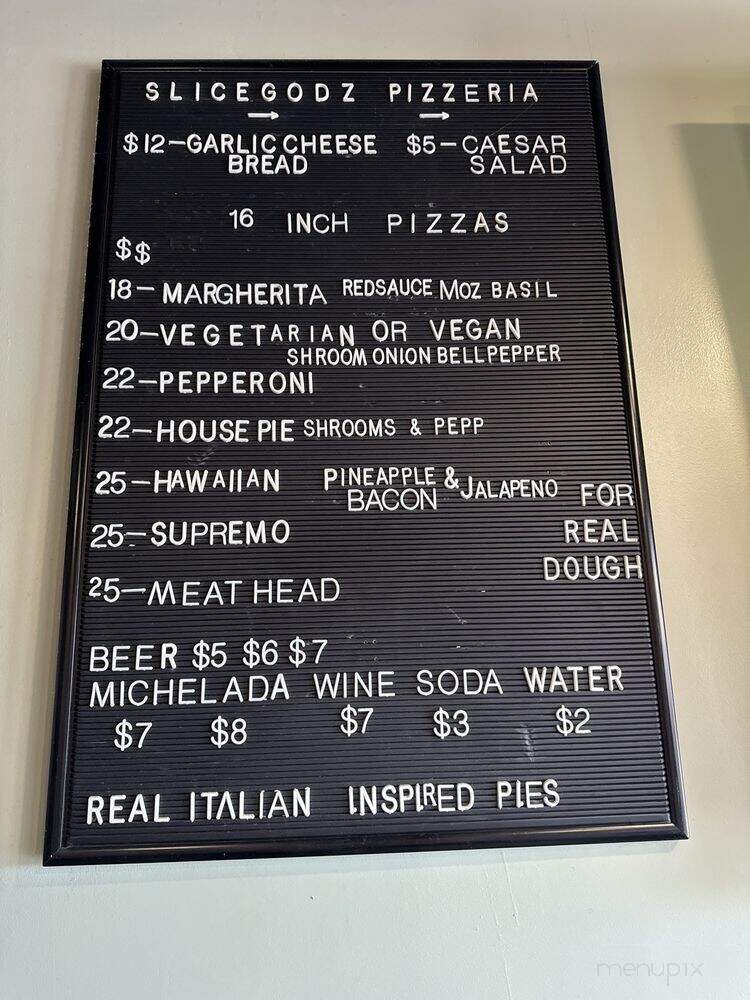 SLICEGODZ PIZZERIA
→ →
$12-GARLIC CHEESE BREAD
$5-CAESAR SALAD
16 INCH PIZZAS
$$
18-MARGHERITA REDSAUCE MOZ BASIL
20-VEGETARIAN OR VEGAN
SHROOM ONION BELLPEPPER
22-PEPPERONI
22-HOUSE PIE SHROOMS & PEPP
25-HAWAIIAN PINEAPPLE & JALAPENO
BACON
25-SUPREMO
25-MEAT HEAD
FOR
REAL
DOUGH
BEER $5 $6 $7
MICHELADA WINE SODA WATER
$7 $8 $7 $3 $2
REAL ITALIAN INSPIRED PIES
menupix